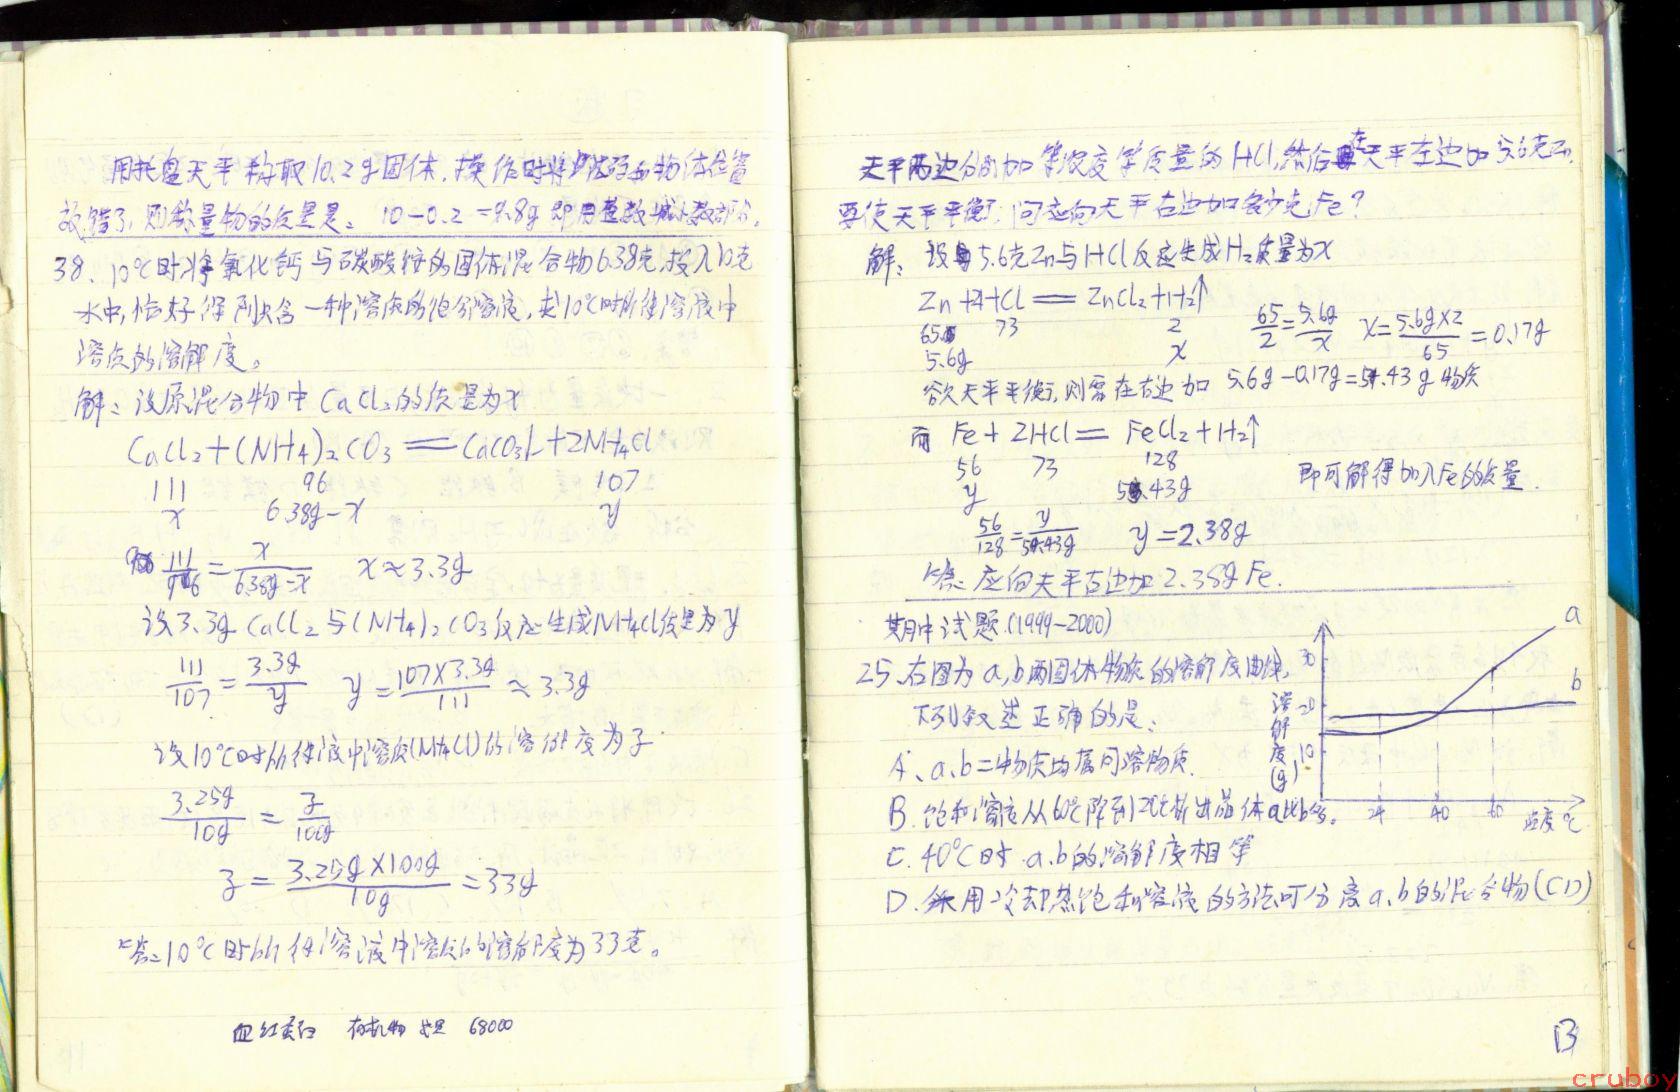 用托盘天平称取10.2g固体,操作时将砝码和物体位置
放错了,则称量物的质量是: 10-0.2=9.8g 即用整数减小数部分。
38. 10℃时将氯化钙与碳酸铵的固体混合物6.38克,投入10克
水中,恰好得到只含一种溶质的饱和溶液,求10℃时所得溶液中
溶质的溶解度。
解:设原混合物中CaCl₂的质量为x
CaCl₂+(NH₄)₂CO₃══CaCO₃↓+2NH₄Cl
111 96 107
x 6.38g-x y
111/96=x/6.38g-x x≈3.3g
设3.3g CaCl₂与(NH₄)₂CO₃反应生成NH₄Cl质量为y
111/107=3.3g/y y=107×3.3g/111≈3.3g
设10℃时所得液中溶质(NH₄Cl)的溶解度为z
3.25g/10g=z/100g
z=3.25g×100g/10g=33g
答:10℃时所得溶液中溶质的溶解度为33克。
血红蛋白 有机物 68000
天平两边分别加等浓度等质量的HCl,然后在天平左边加5.6克Zn,
要使天平平衡,问应向天平右边加多少克Fe?
解:设5.6克Zn与HCl反应生成H₂质量为x
Zn+2HCl══ZnCl₂+H₂↑
65 73 2
5.6g x
65/2=5.6g/x x=5.6g×2/65=0.17g
欲天平平衡,则需在右边加 5.6g-0.17g=5.43g物质
而 Fe+2HCl══FeCl₂+H₂↑
56 73 128
y 5.43g
即可解得加入Fe的质量.
56/128=y/5.43g y=2.38g
答:应向天平右边加2.38gFe.
期中试题(1999-2000)
25.右图为a,b两固体物质的溶解度曲线,
下列叙述正确的是:
A、a、b二物质均属可溶物质.
B.饱和溶液从60℃降到20℃析出晶体a比b多。
C.40℃时.a.b的溶解度相等
D.采用冷却热饱和溶液的方法可分离a、b的混合物(CD)
a
b
30
20
10
溶解度(g)
24 40 60 温度℃
13
cruboy